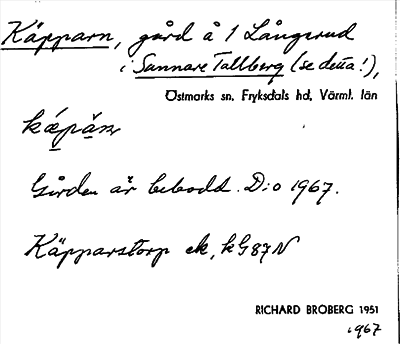 Käpparn, gård å 1 Långerud
i Sunnare Tallberg (se detta!),
Östmarks sn, Fryksdals hd, Värml. län
kǽpa̠n
Gården är bebodd. D:o 1967.
Käpparstorp ek, kG87N
RICHARD BROBERG 1951
1967